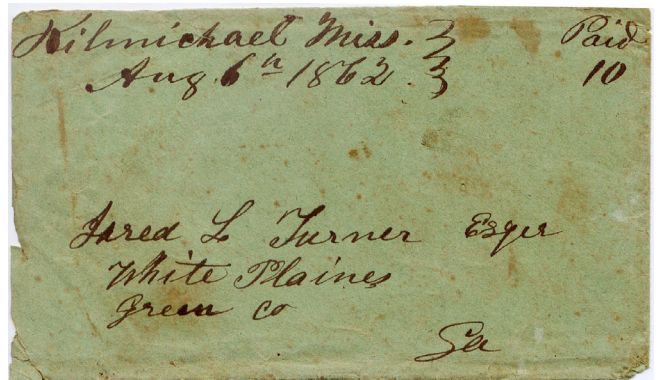 Kilmichael Miss. Paid
Aug 6th 1862. 10
Jared L Turner Esqer
White Plaines
Green Co
Ga